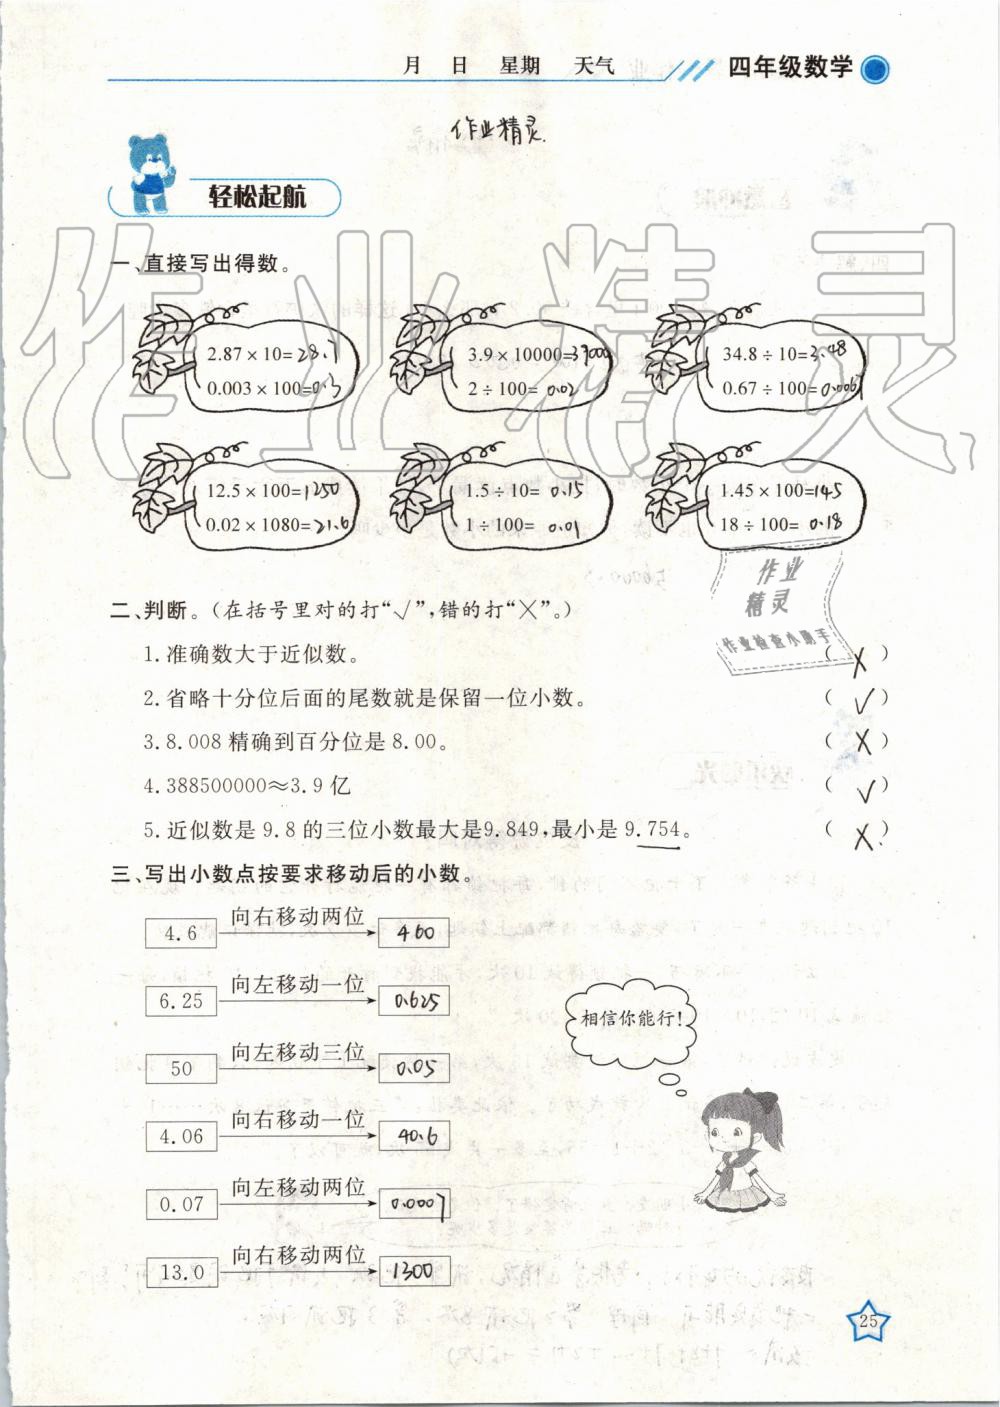 月 日 星期 天气 四年级数学
作业精灵
轻松起航
一、直接写出得数。
2.87×10=28.7 3.9×10000=39000 34.8÷10=3.48
0.003×100=0.3 2÷100=0.02 0.67÷100=0.0067
12.5×100=1250 1.5÷10=0.15 1.45×100=145
0.02×1080=21.6 1÷100=0.01 18÷100=0.18
作业
精灵
作业检查小助手
二、判断。(在括号里对的打“√”,错的打“×”。)
1.准确数大于近似数。 (×)
2.省略十分位后面的尾数就是保留一位小数。 (√)
3.8.008精确到百分位是8.00。 (×)
4.388500000≈3.9亿 (√)
5.近似数是9.8的三位小数最大是9.849,最小是9.754。 (×)
三、写出小数点按要求移动后的小数。
4.6 向右移动两位 460
6.25 向左移动一位 0.625
相信你能行!
50 向左移动三位 0.05
4.06 向右移动一位 40.6
0.07 向左移动两位 0.0007
13.0 向右移动两位 1300
25
作业精灵